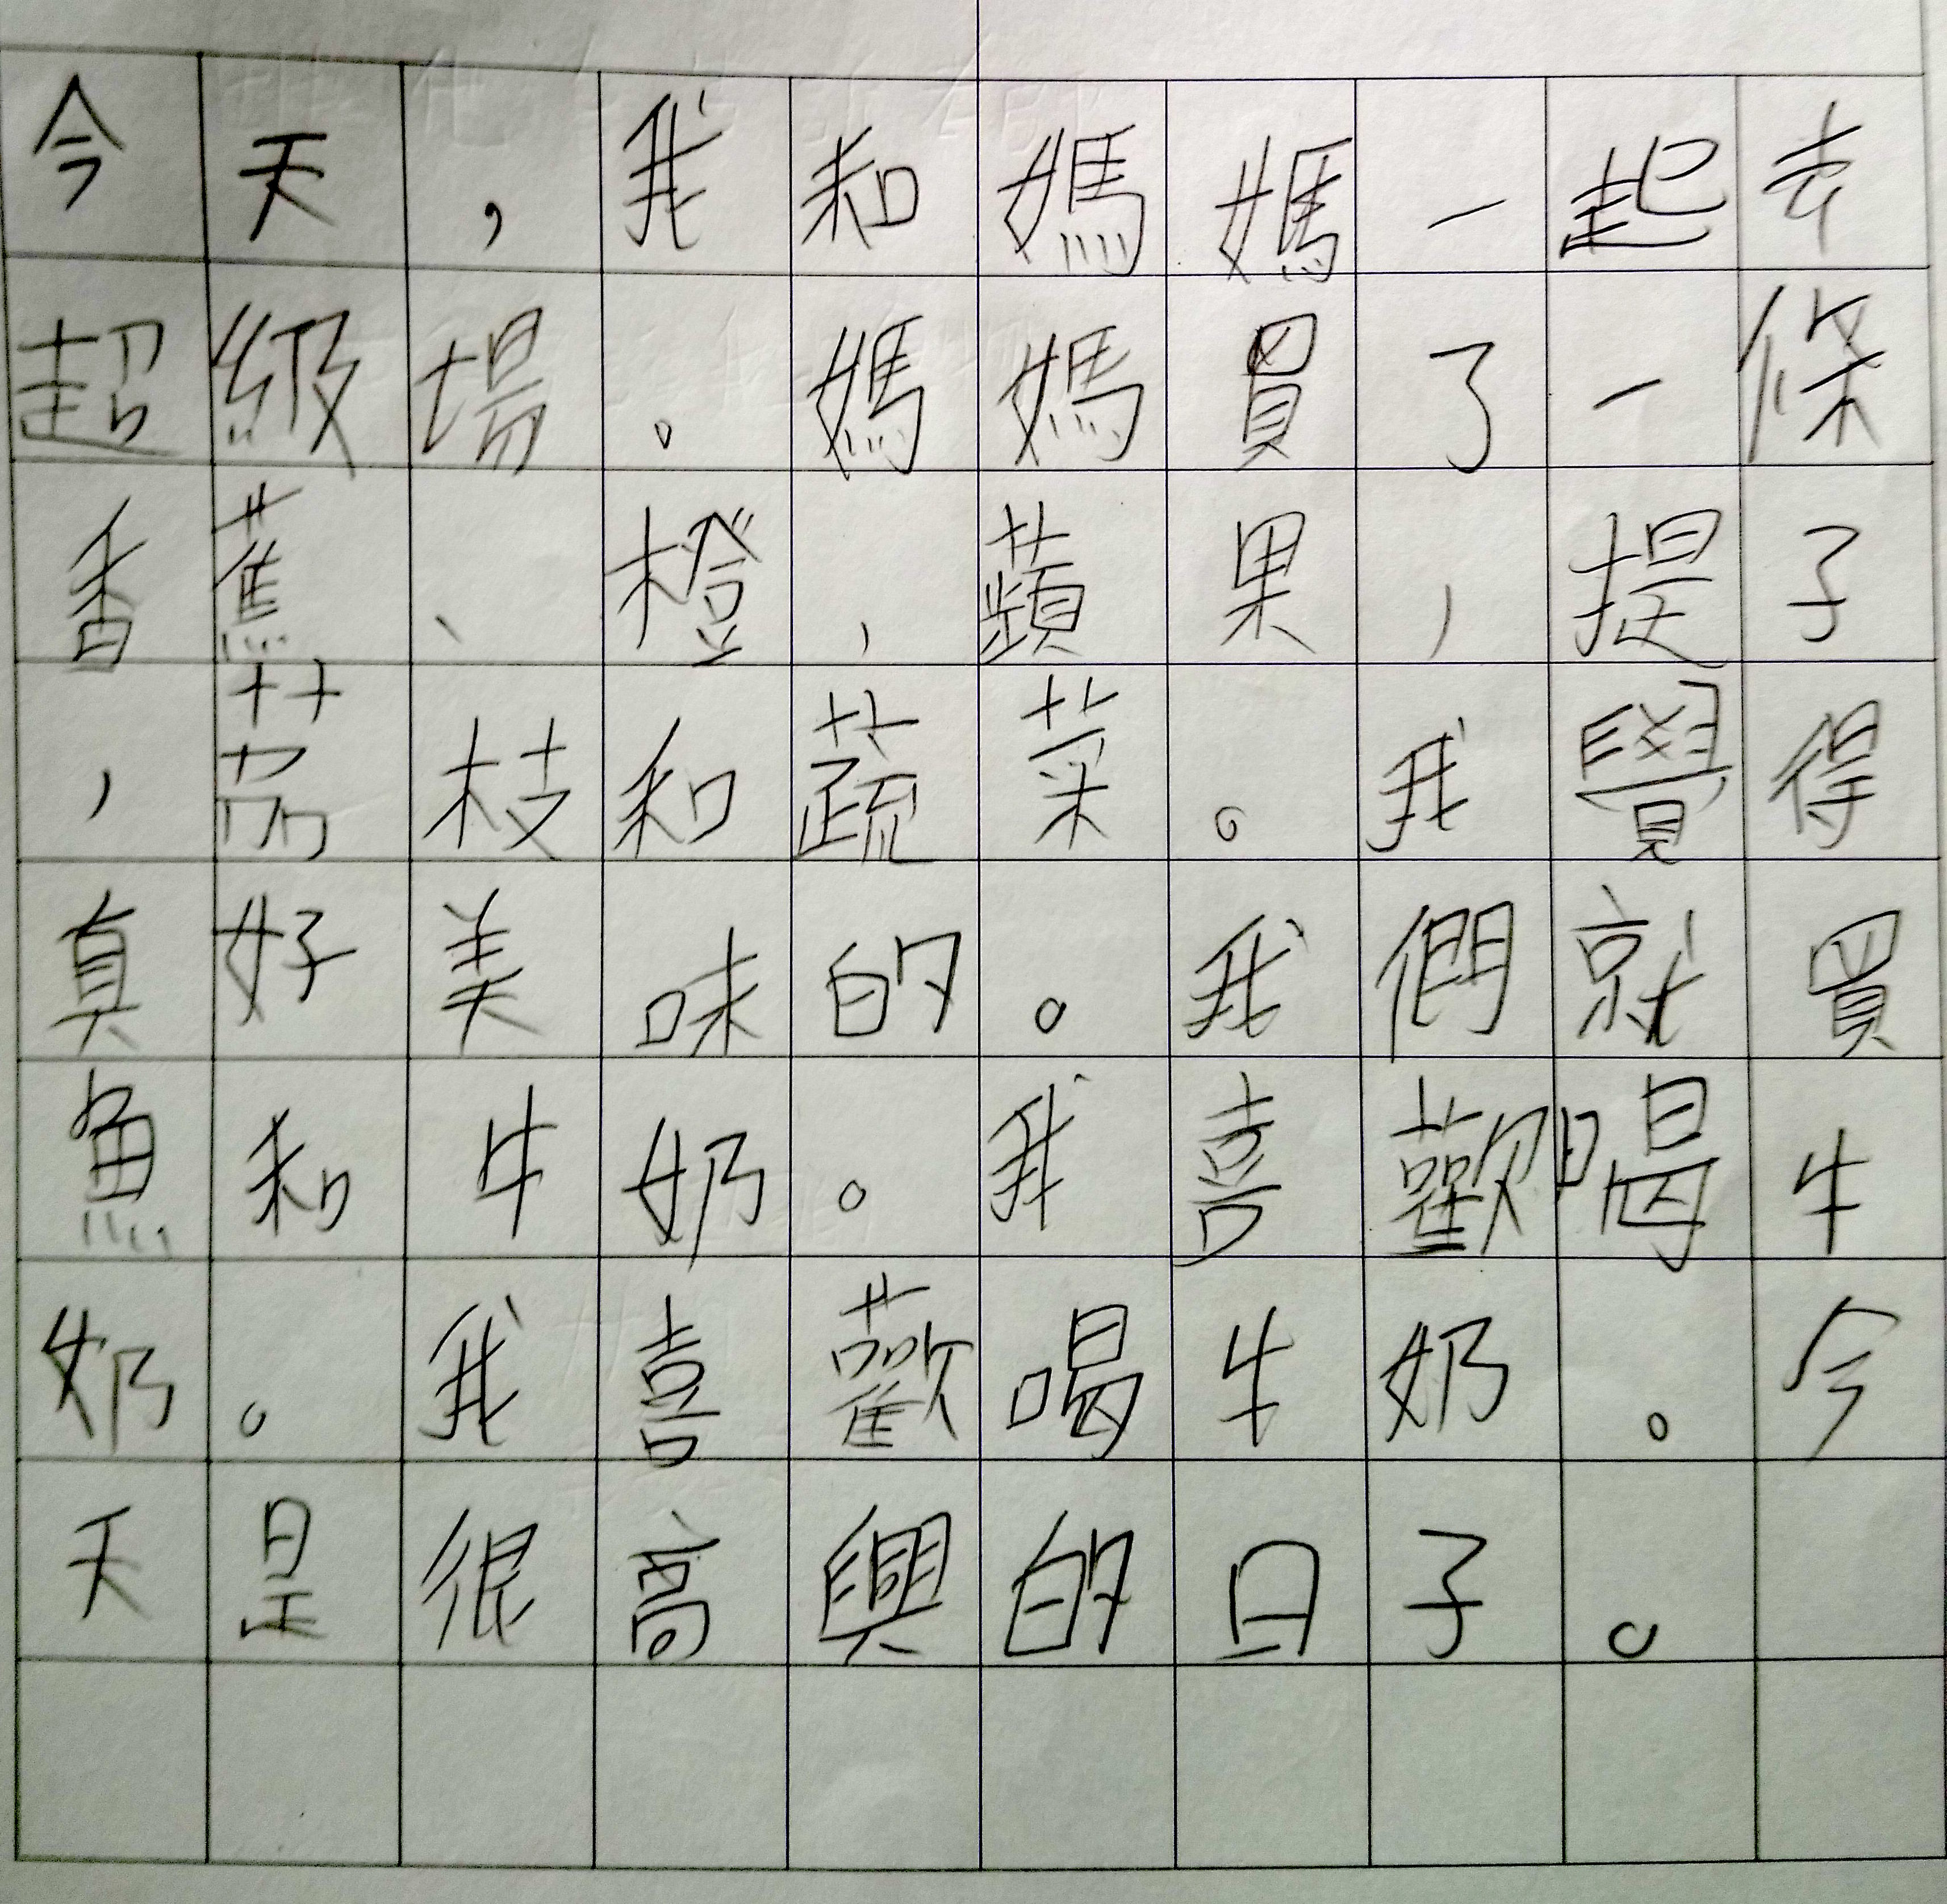 今天，我和媽媽一起去
超級場。媽媽買了一條
香蕉、橙，蘋果，提子
，茘枝和蔬菜。我覺得
真好美味的。我們就買
魚和牛奶。我喜歡喝牛
奶。我喜歡喝牛奶。今
天是很高興的日子。